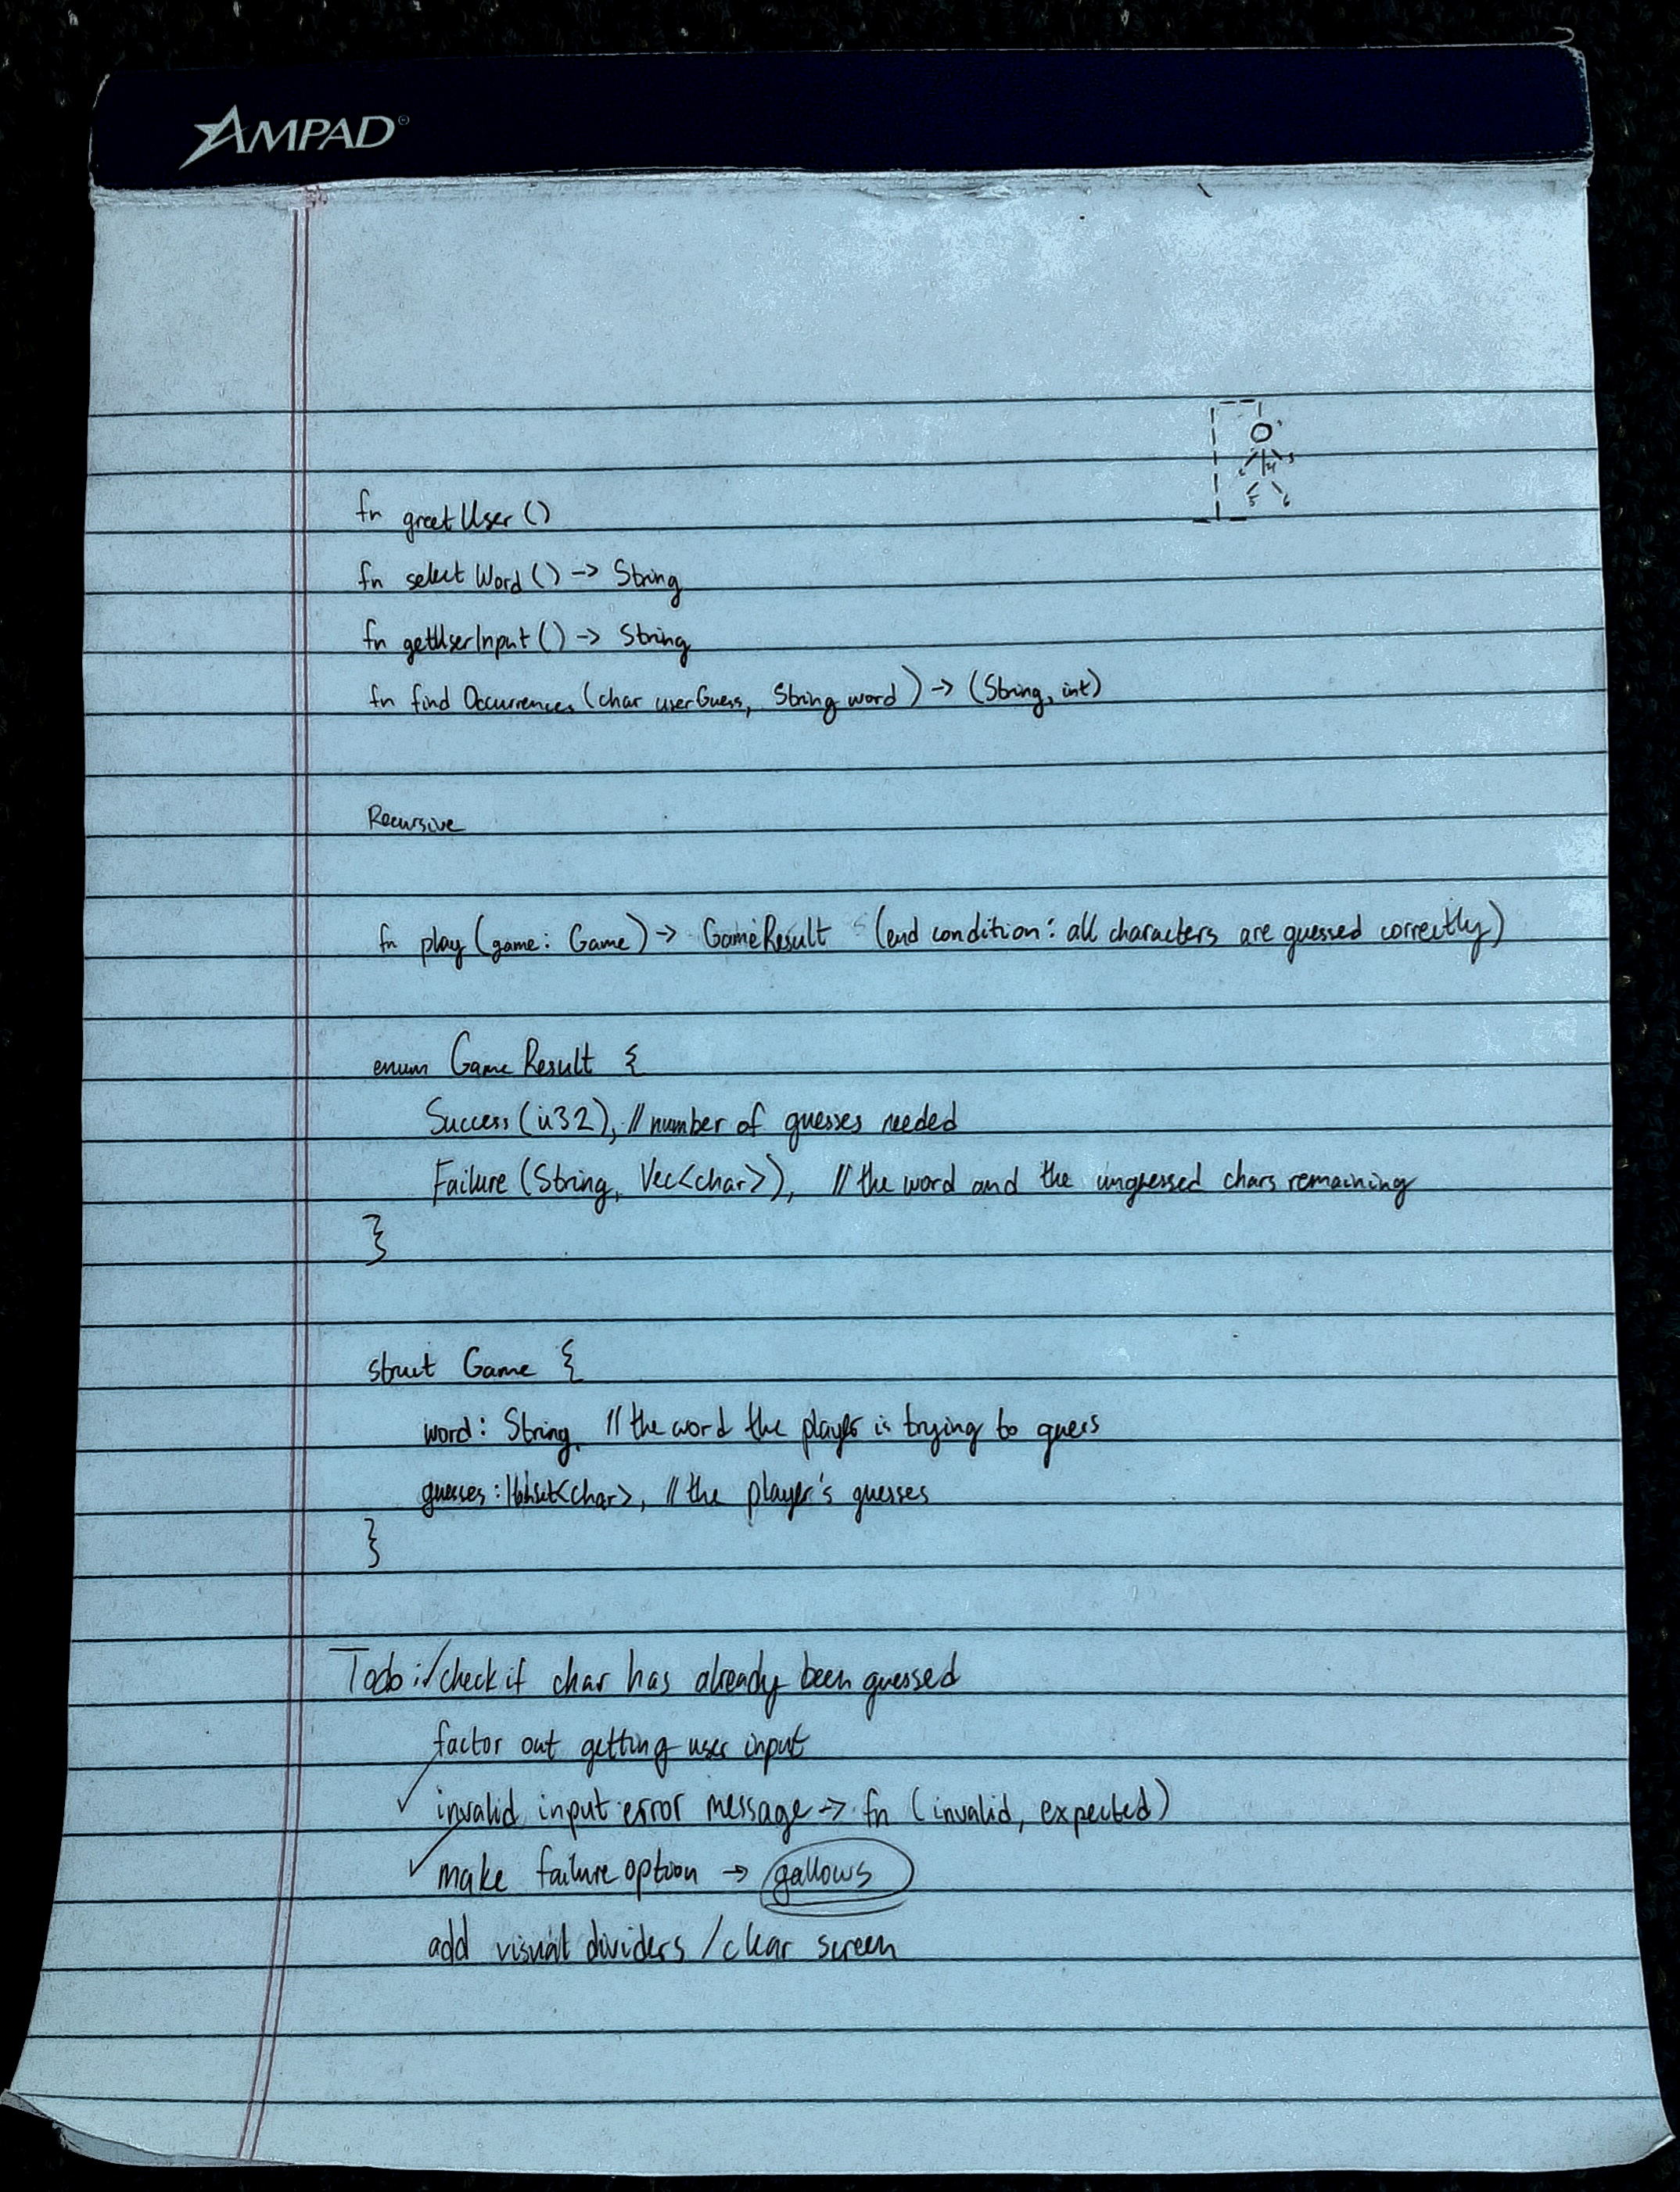 AMPAD®
fn greetUser()
fn selectWord() -> String
fn getUserInput() -> String
fn findOccurrences(char userGuess, String word) -> (String, int)
Recursive
fn play(game: Game) -> GameResult (end condition: all characters are guessed correctly)
enum GameResult {
Success(u32), // number of guesses needed
Failure(String, Vec<char>), // the word and the unguessed chars remaining
}
struct Game {
word: String, // the word the player is trying to guess
guesses: HashSet<char>, // the player's guesses
}
Todo: ✓ check if char has already been guessed
factor out getting user input
✓ invalid input error message -> fn (invalid, expected)
✓ make failure option -> gallows
add visual dividers / clear screen